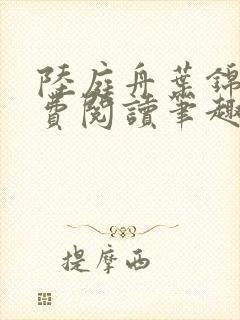 陸庭舟葉錦
費閱讀筆趣
提摩西